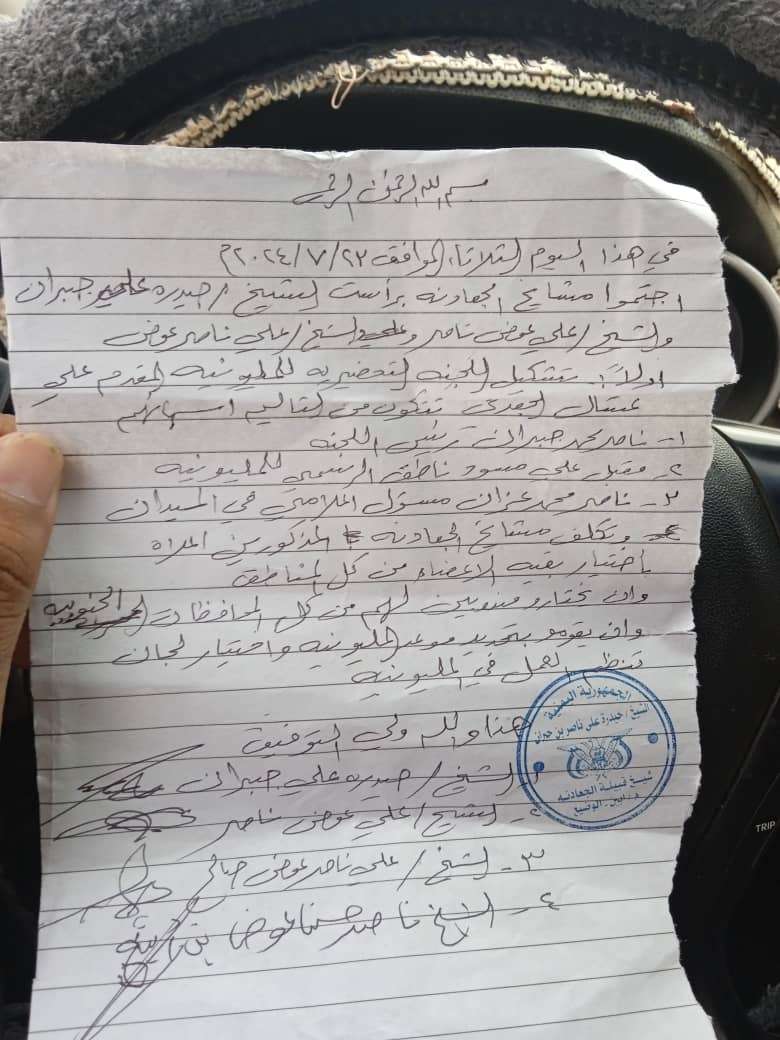 بسم الله الرحمن الرحيم
في هذا اليوم الثلاثاء الموافق ٢٠٢٤/٧/٢٣م
اجتموا مشايخ الجعادنه برأست الشيخ / حيدره علي جبران
والشيخ / علي عوض ناصر والشيخ / علي ناصر عوض
اولاً: تشكيل اللجنه التحضيريه للمليونيه المقدم علي
عشال الجعدني تتكون من التاليه اسمائهم
١- ناصر محمد جبران رئيس اللجنه
٢- مقبل علي مسود ناطق الرسمي للمليونيه
٣- ناصر محمد عزان مسؤل اعلامي في الميدان
وتكلف مشايخ الجعادنه المذكورين اعلاه
باختيار بقيه الاعضاء من كل المناطق
وان تختارو مندوبين لهم من كل المحافظات الجنوبيه
وان يقومو بتحديد موعد المليونيه واختيار لجان
تنظم العمل في المليونيه
هذا والله ولي التوفيق
١- الشيخ / حيدره علي جبران
٢- الشيخ / علي عوض ناصر
٣- الشيخ / علي ناصر عوض صالح
٤- الشيخ ناصر حسن عوض بن
الجمهورية اليمنية
الشيخ / حيدرة علي ناصر بن جبران
شيخ قبيلة الجعادنه
ابين - الوضيع
TRIP